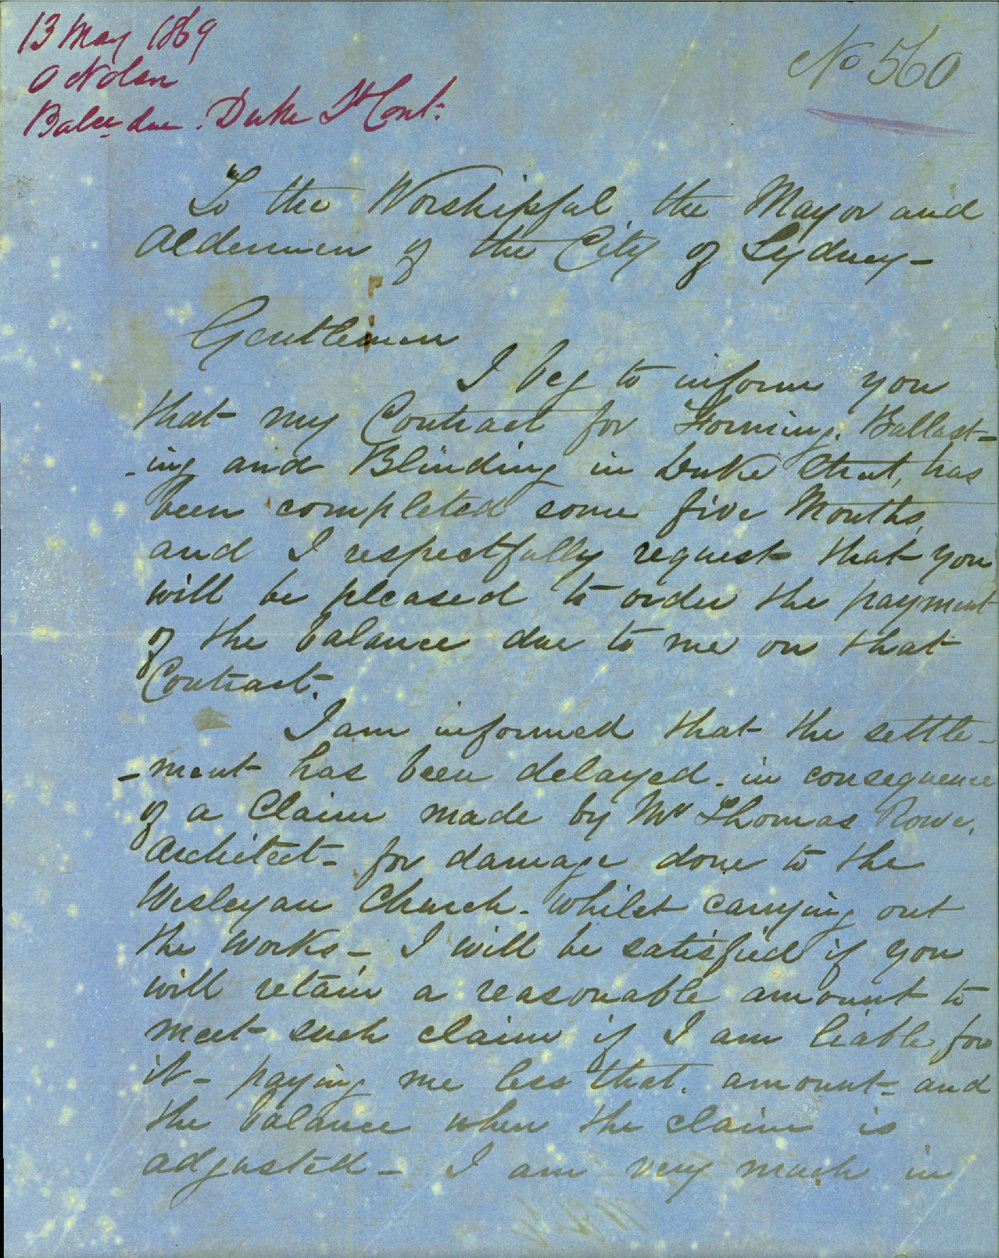 13 May 1869
O Nolan
Balce due. Duke St Cont:
No 560
To the Worshipful the Mayor and
Aldermen of the City of Sydney –
Gentlemen
I beg to inform you
that my Contract for Forming, Ballast-
-ing and Blinding in Duke Street, has
been completed some five Months,
and I respectfully request that you
will be pleased to order the payment
of the balance due to me on that
Contract.
I am informed that the settle-
-ment has been delayed in consequence
of a Claim made by Mr Thomas Rowe,
Architect – for damage done to the
Wesleyan Church – whilst carrying out
the Works – I will be satisfied if you
will retain a reasonable amount to
meet such claim if I am liable for
it – paying me less that amount – and
the balance when the claim is
adjusted – I am very much in